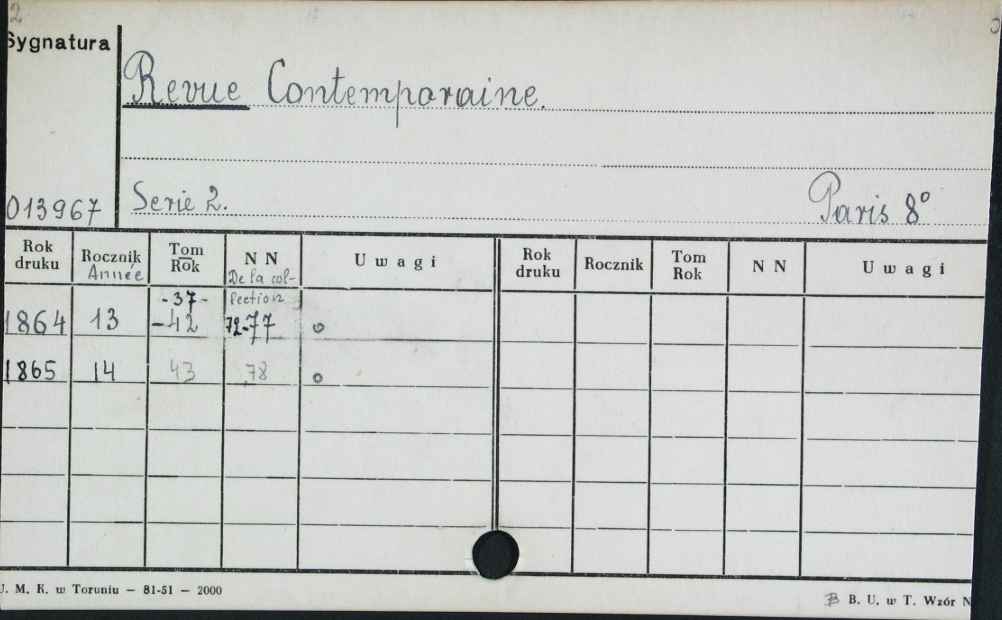 2
Sygnatura
Revue Contemporaine.
013967
Serie 2.
Paris 8°
Rok druku
Rocznik
Année
Tom
Rok
N N
De la col-
lection
U w a g i
Rok druku
Rocznik
Tom
Rok
N N
U w a g i
1864 13 -37- -42 72-77 o
1865 14 43 78 o
U. M. K. w Toruniu — 81-51 — 2000
B. U. w T. Wzór N